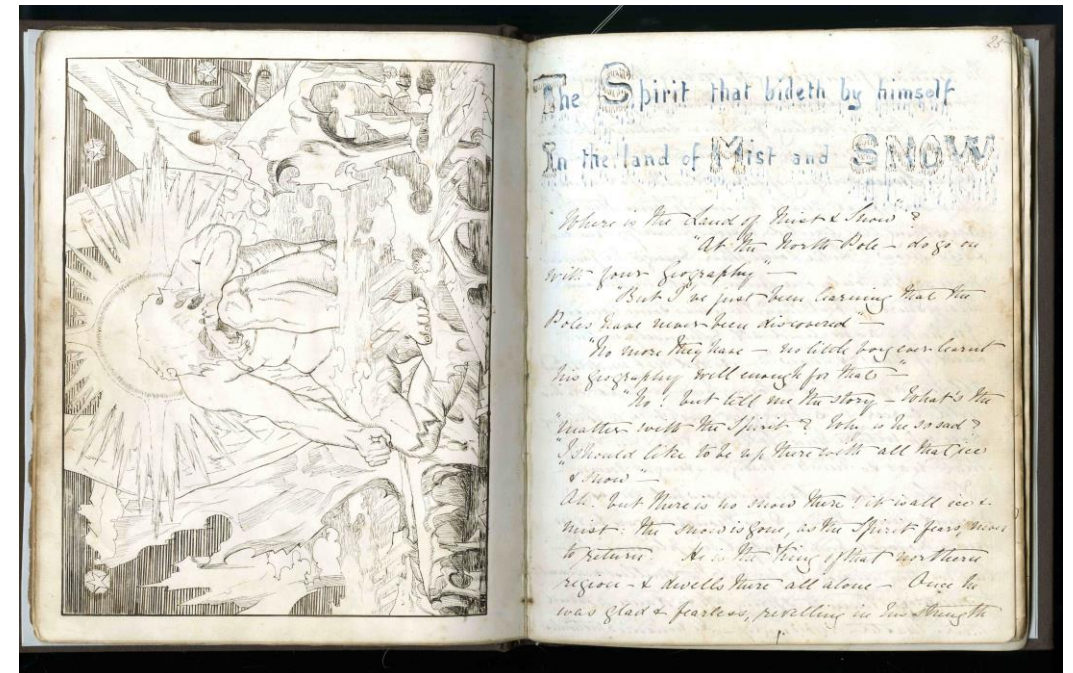 25
The Spirit that bideth by himself
In the land of Mist and SNOW
"Where is the Land of Mist & Snow"?
"At the North Pole – do go on
with your geography" –
"But I've just been learning that the
Poles have never been discovered" –
"No more they have – no little boy ever learnt
his geography well enough for that –
"No! but tell me the story – What's the
"matter with the Spirit? Why is he so sad?
"I should like to be up there with all that ice
& snow" –
Ah! but there is no snow there! it is all ice &
mist: the snow is gone, as the Spirit fears, never
to return. He is the King of that northern
region – & dwells there all alone – Once he
was glad & fearless, revelling in his strength